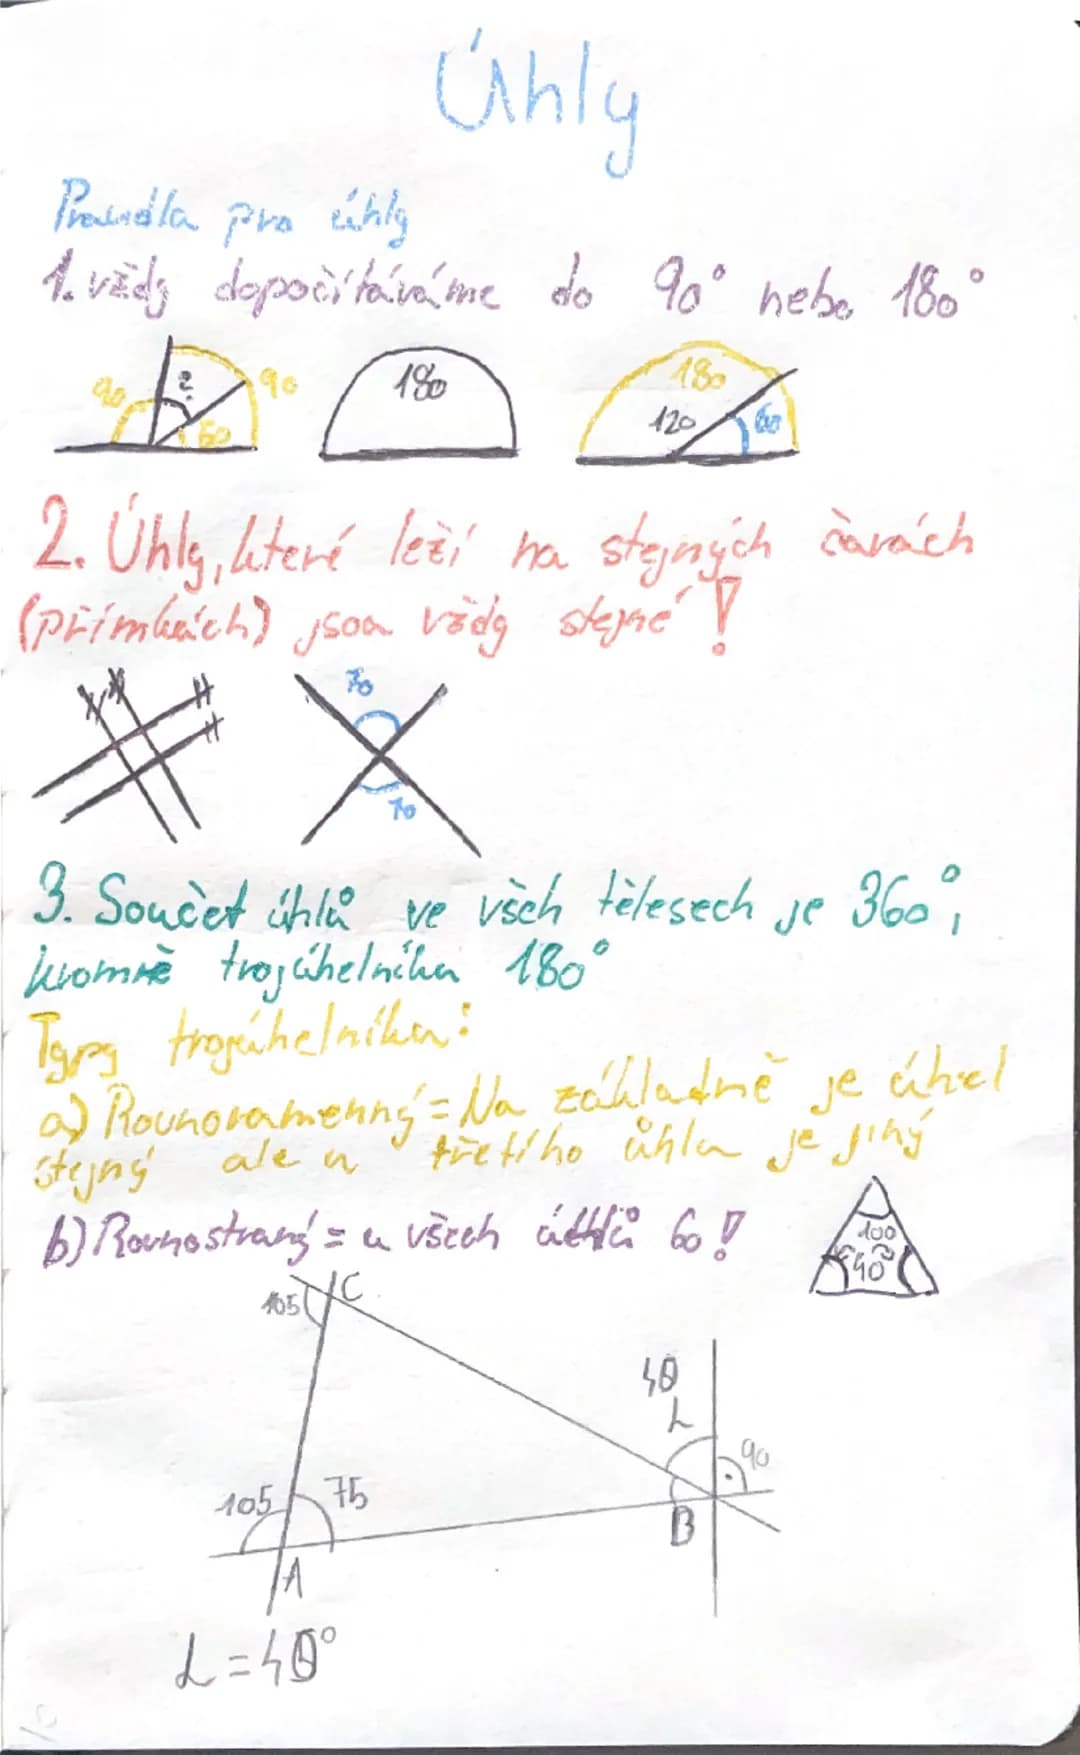 Úhly
Pravidla pro úhly
1. vždy dopočítáváme do 90° nebo 180°
90 ? 90 60
180
180 120 60
2. Úhly, které leží na stejných čarách
(přímkách) jsou vždy stejné!
70
70
3. Součet úhlů ve všch tělesech je 360°,
kromě trojúhelníku 180°
Typy trojúhelníku:
a) Rovnoramenný = Na základně je úhel
stejný ale u třetího úhlu je jiný
b) Rovnostraný = u všech úhlů 60!
100
40
105 C
40
L
90
105 75
B
A
L = 40°